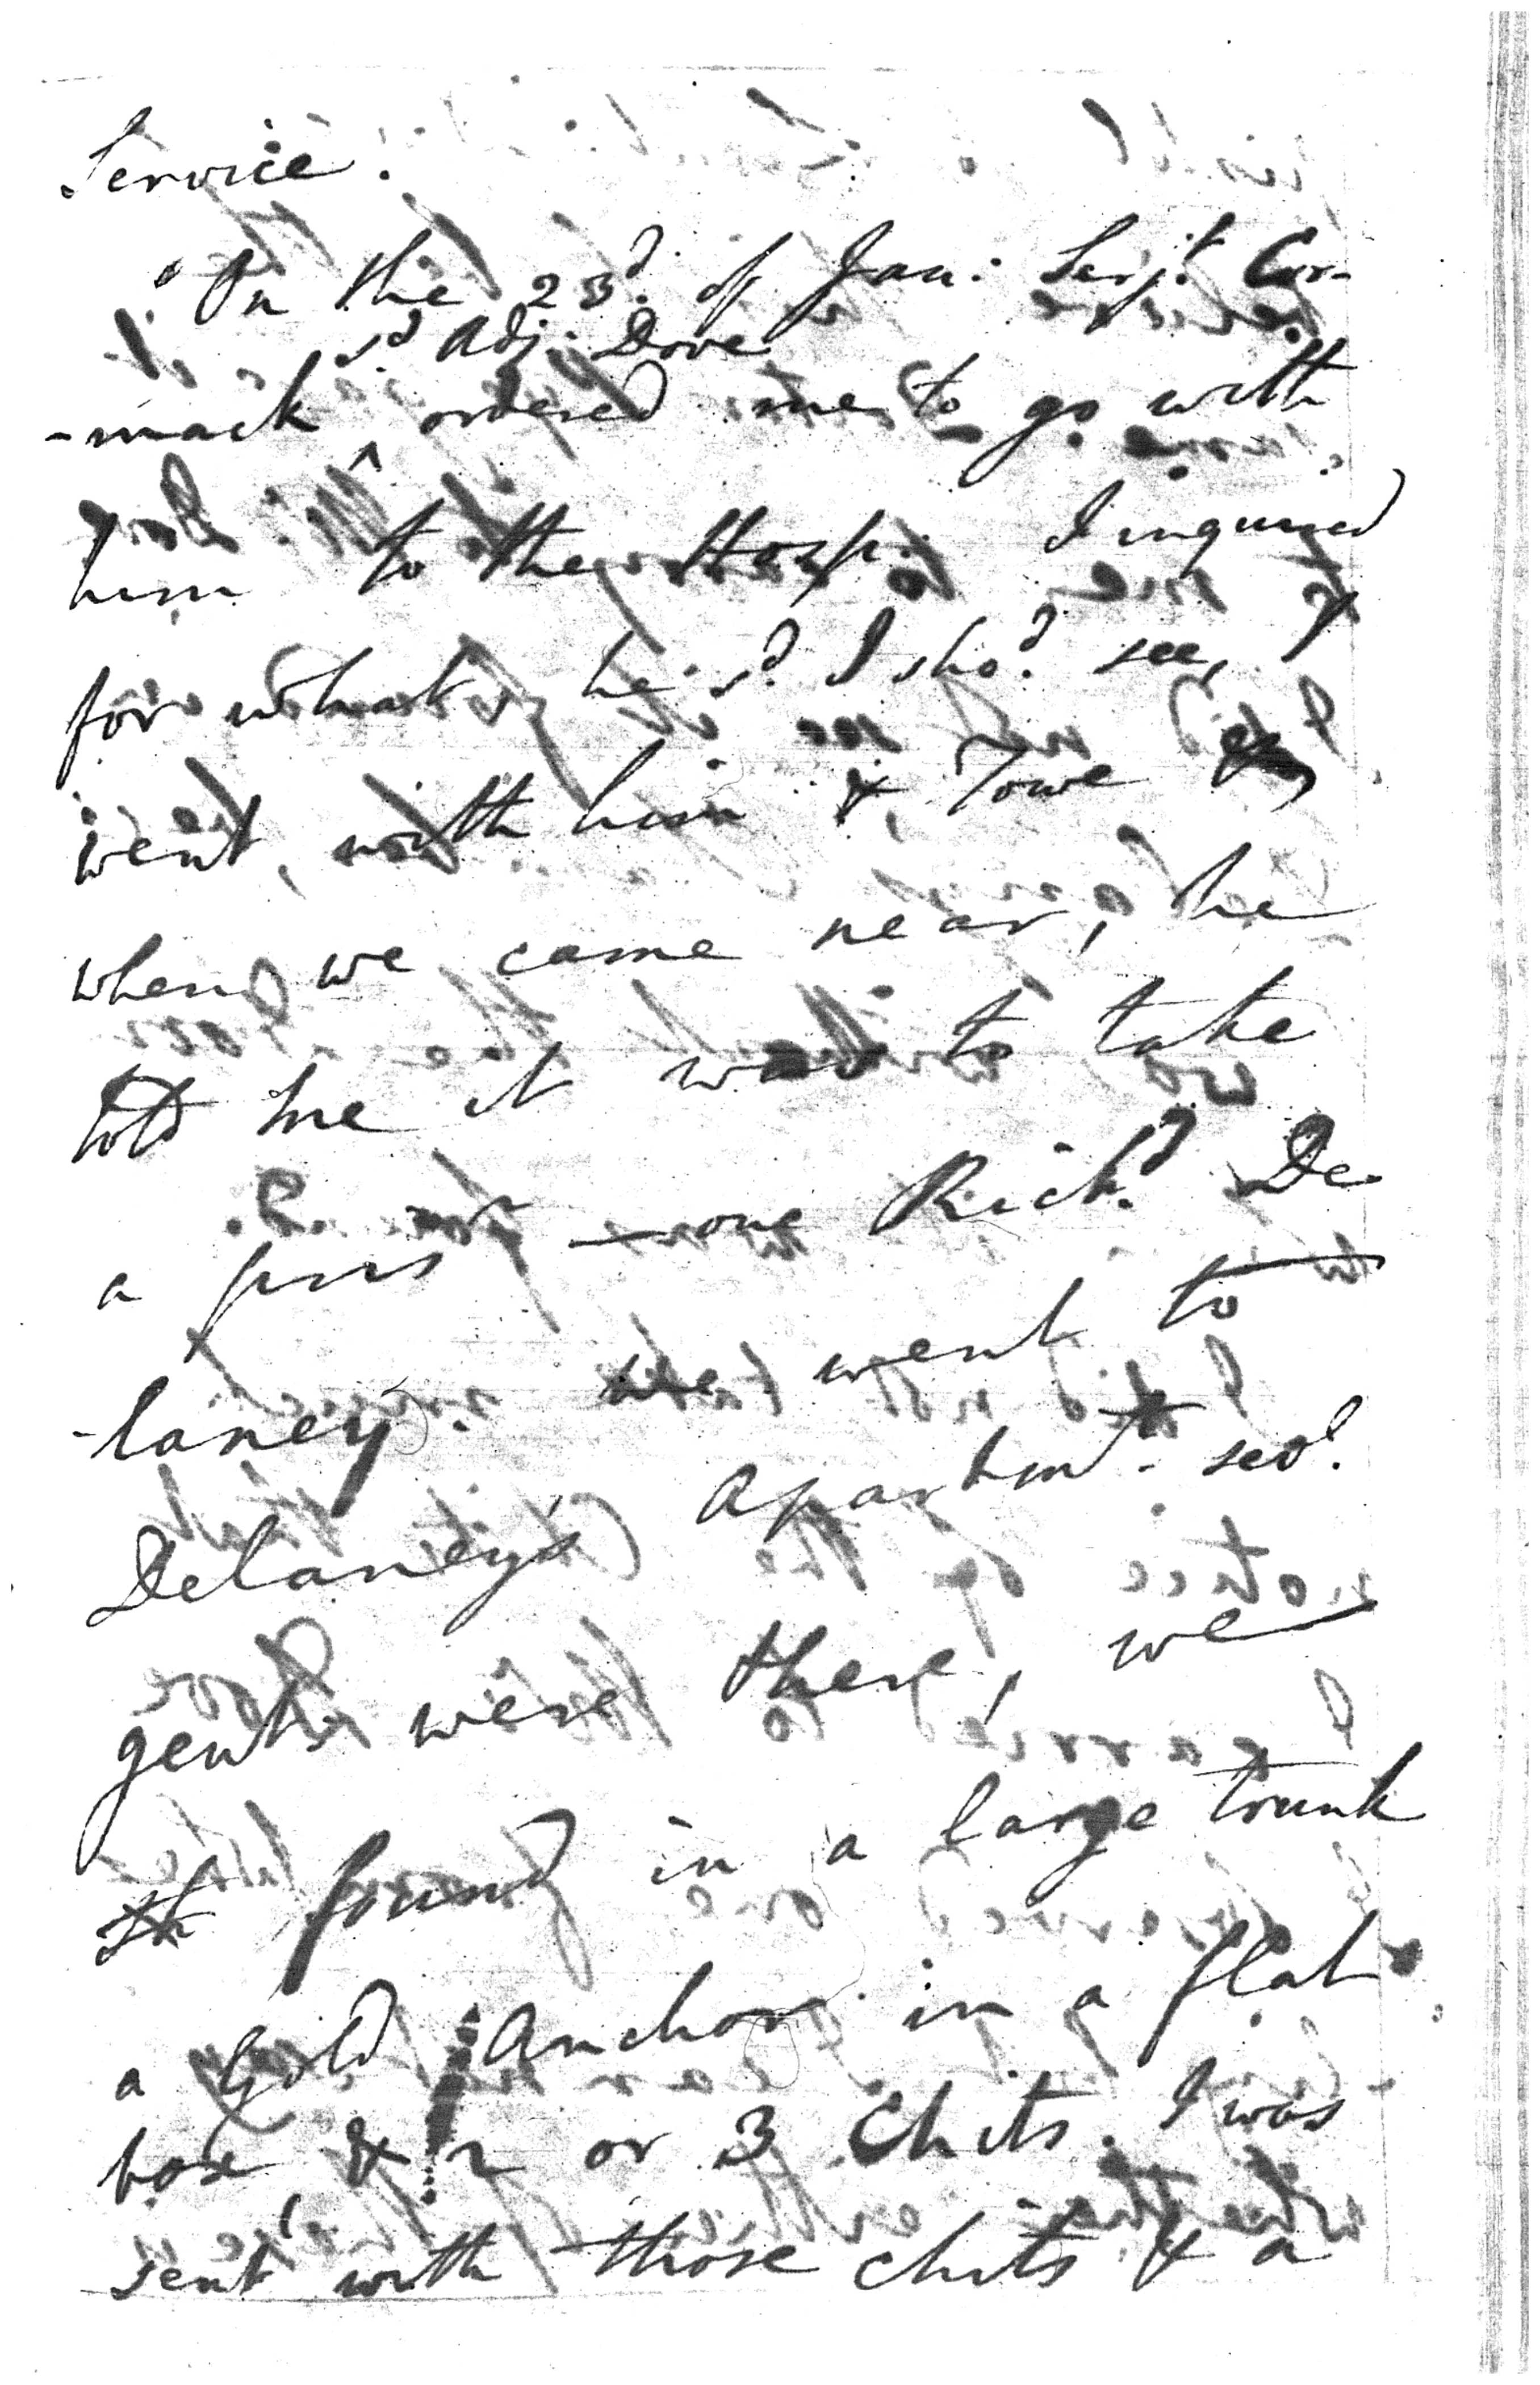 Service.
"On the 23d. of Jan: Serjt. Cor-
sd Adj. Dove
-mack ^ ordered me to go with
him to the Hosp. I inquired
for what, he sd. I shod. see, I
went, with him & Towe
when we came near, he
told me it was to take
a pris — one Richd. De-
-laney. we went to
Delaney's Apartmt. sevl.
gents. were there, we
found in a large trunk
a Gold Anchor in a flat
box, & 2 or 3 Chits. I was
sent with those chits & a